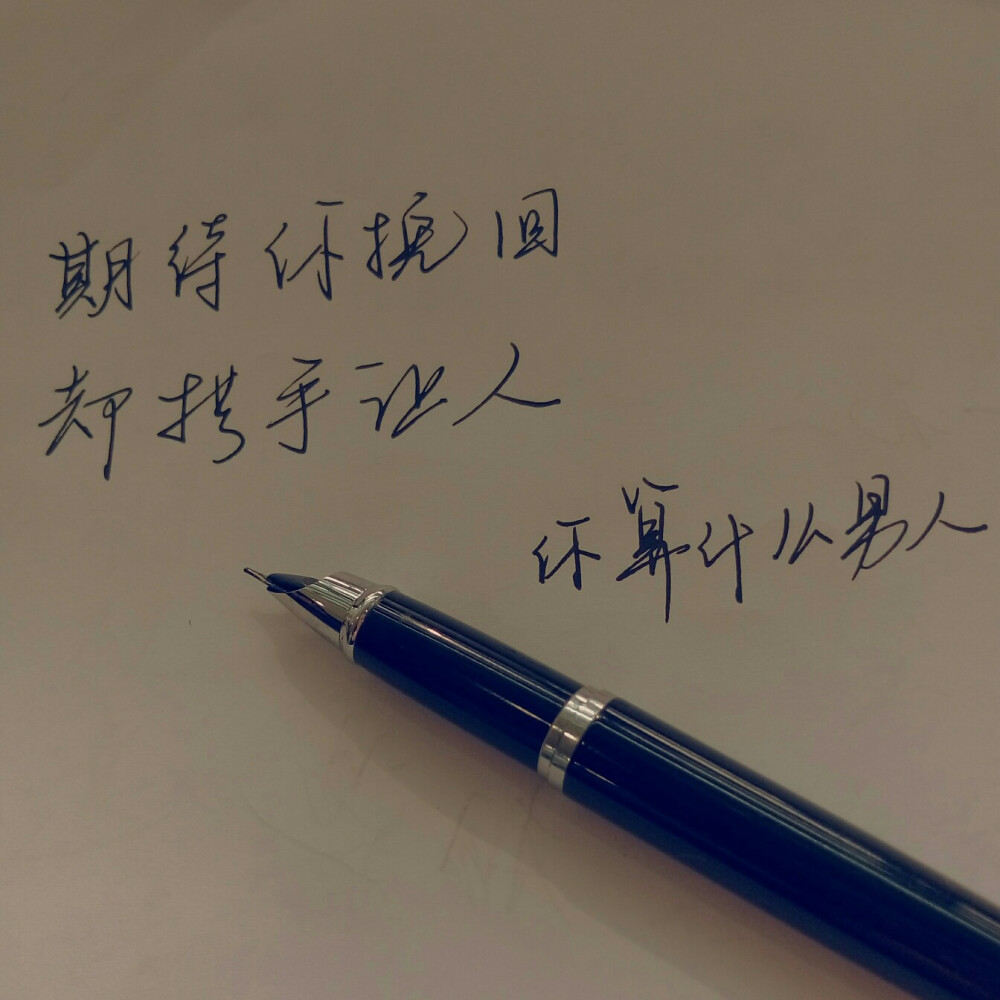 期待你挽回
却拱手让人
你算什么男人